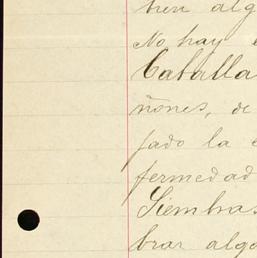 bien alg
No hay e
Caballa
ñones, de
jado la e
fermedad
Siembras
brar algo